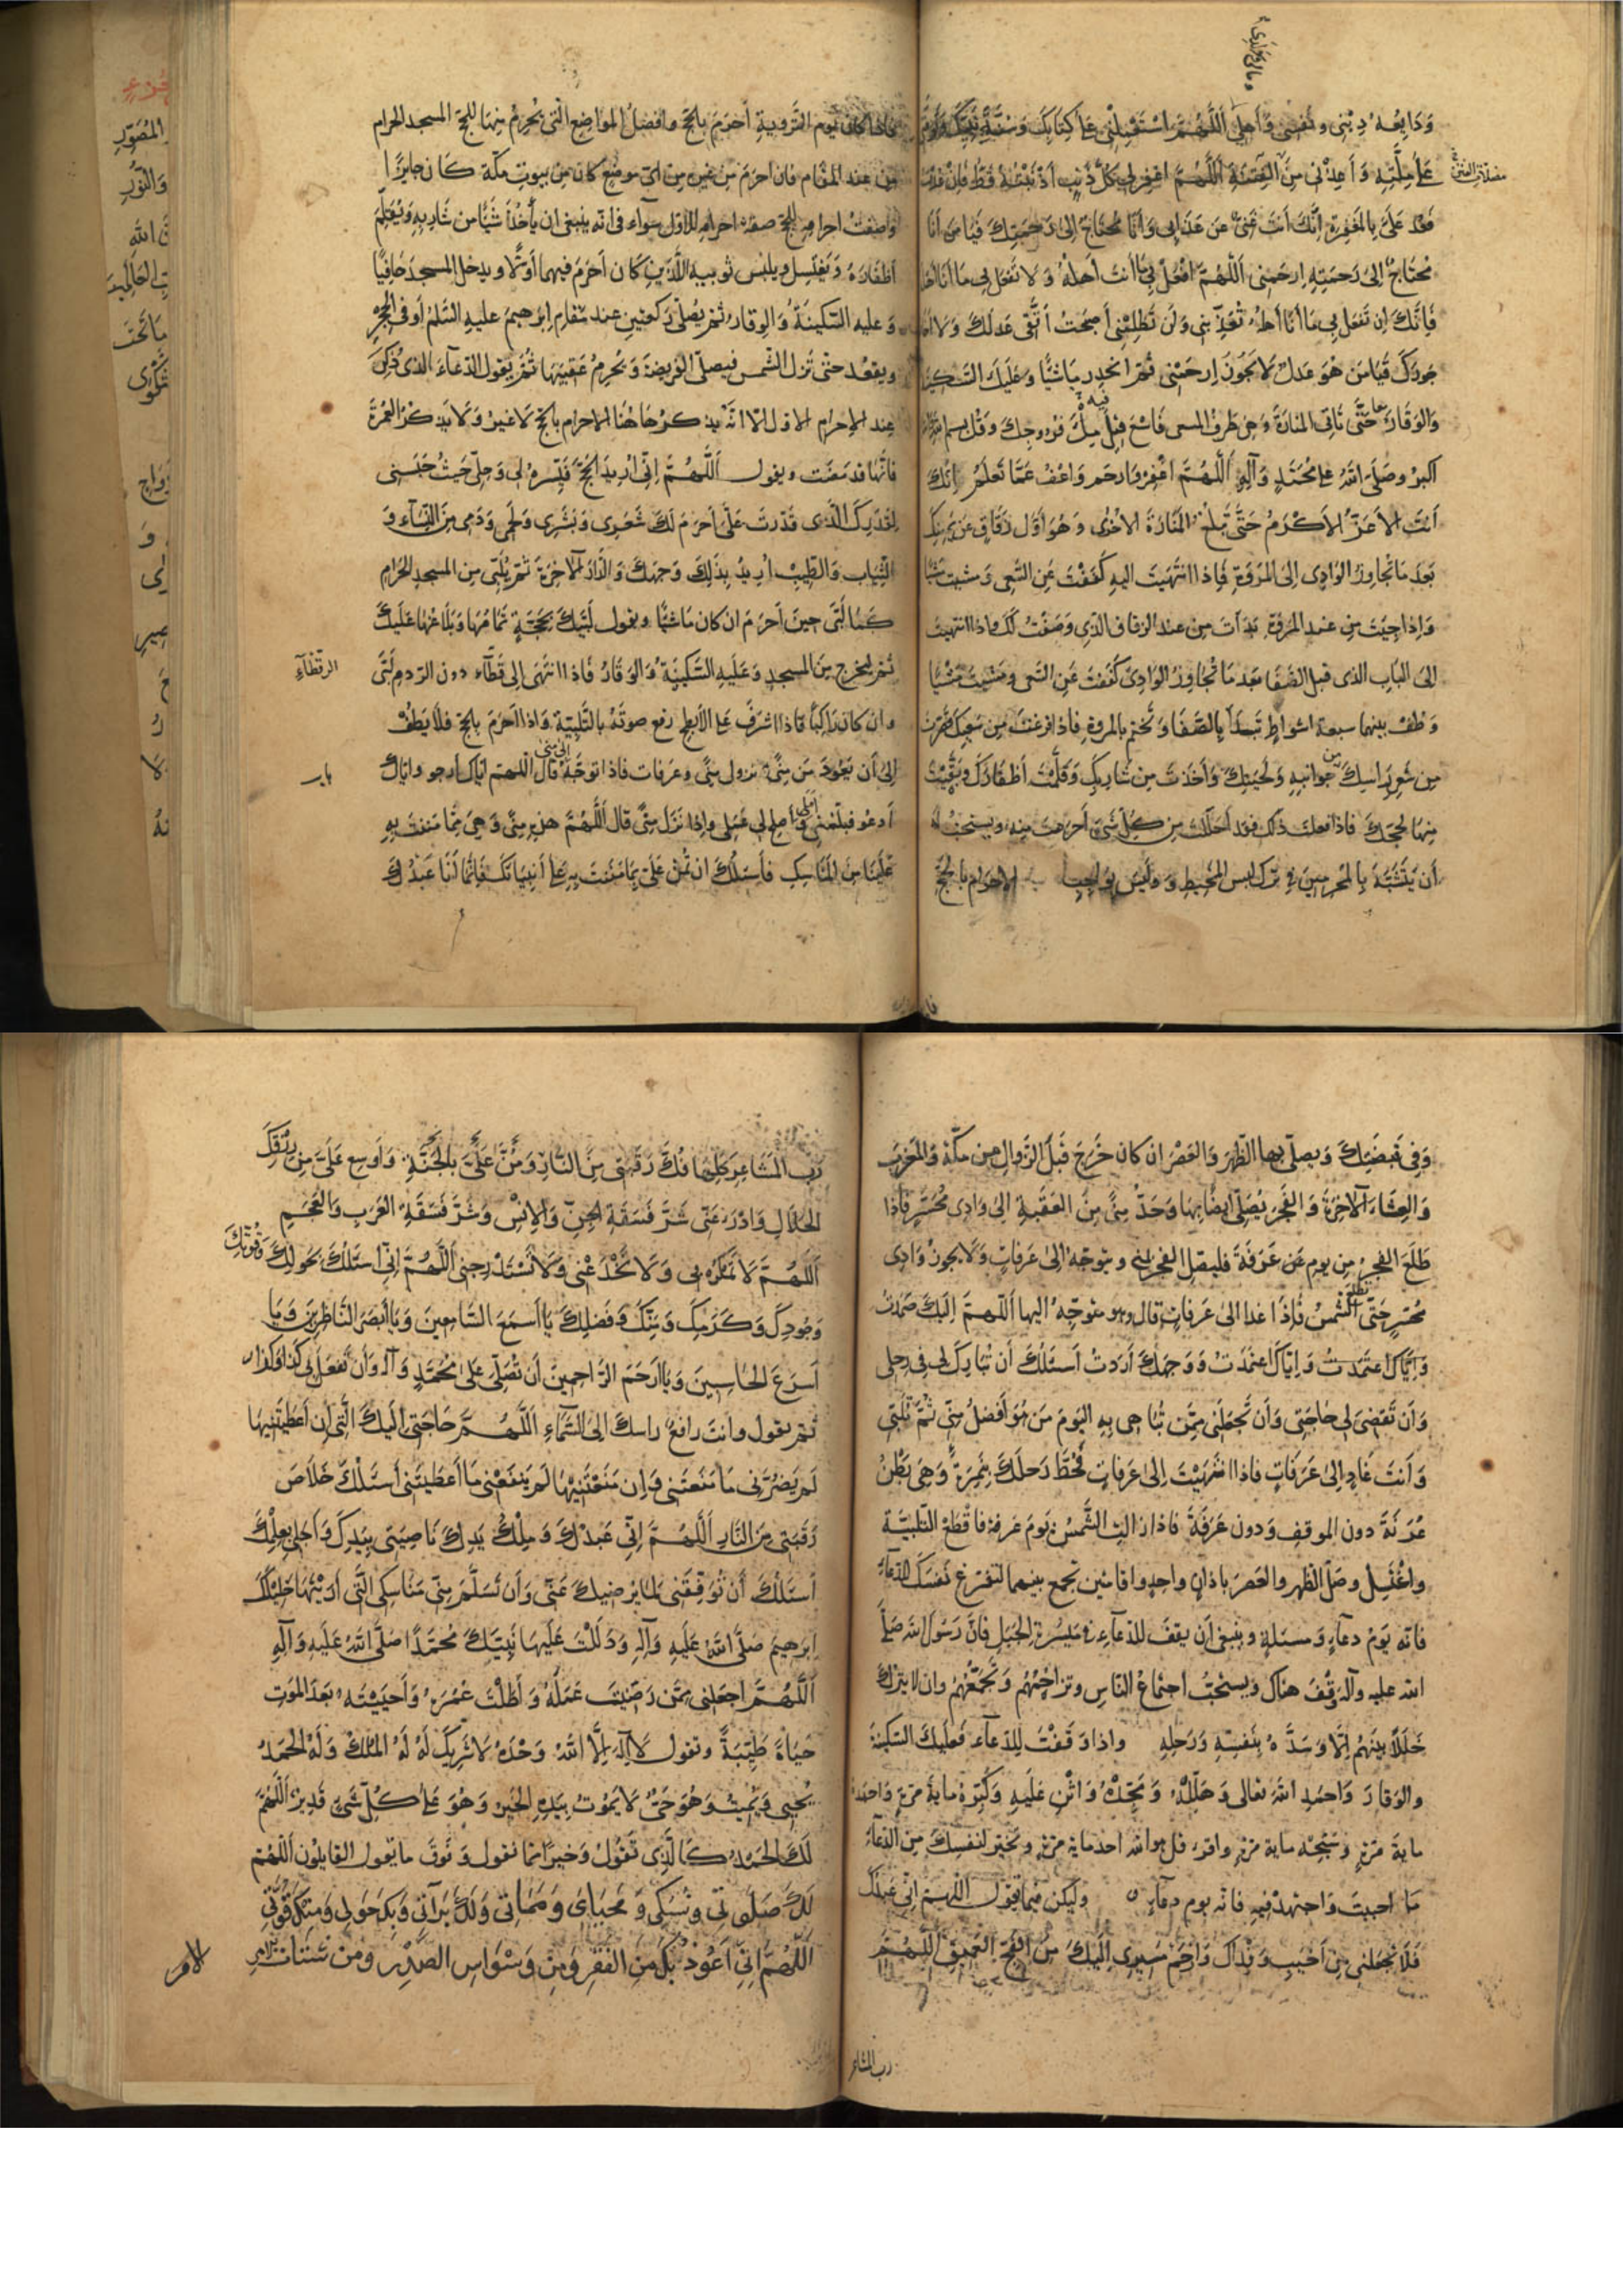 وَدَايِعَهُ دِينِي وَنَفْسِي وَأَهْلِي اَللّٰهُمَّ اسْتَعْمِلْنِي عَلَى كِتَابِكَ وَسُنَّةِ نَبِيِّكَ وَتَوَفَّنِي
عَلَى مِلَّتِهِ وَأَعِذْنِي مِنَ الْفِتْنَةِ اَللّٰهُمَّ اغْفِرْ لِي كُلَّ ذَنْبٍ أَذْنَبْتُهُ قَطُّ فَإِنْ عُدْتُ
فَعُدْ عَلَيَّ بِالْمَغْفِرَةِ إِنَّكَ أَنْتَ غَنِيٌّ عَنْ عَذَابِي وَأَنَا مُحْتَاجٌ إِلَى رَحْمَتِكَ فَيَا مَنْ أَنَا
مُحْتَاجٌ إِلَى رَحْمَتِهِ اِرْحَمْنِي اَللّٰهُمَّ افْعَلْ بِي مَا أَنْتَ أَهْلُهُ وَلَا تَفْعَلْ بِي مَا أَنَا أَهْلُهُ
فَإِنَّكَ إِنْ تَفْعَلْ بِي مَا أَنَا أَهْلُهُ تُعَذِّبْنِي وَلَنْ تَظْلِمَنِي أَصْبَحْتُ أَتَّقِي عَدْلَكَ وَلَا أَخَافُ
جَوْرَكَ فَيَا مَنْ هُوَ عَدْلٌ لَا يَجُورُ اِرْحَمْنِي ثُمَّ انْحَدِرْ مَاشِيًا وَعَلَيْكَ السَّكِينَةُ
وَالْوَقَارُ حَتَّى تَأْتِيَ الْمَنَارَةَ وَهِيَ طَرَفُ الْمَسْعَى فَاسْعَ فِيهِ مِلْءَ فُرُوجِكَ وَقُلْ بِسْمِ اللهِ اللهُ
أَكْبَرُ وَصَلَّى اللهُ عَلَى مُحَمَّدٍ وَآلِهِ اَللّٰهُمَّ اغْفِرْ وَارْحَمْ وَاعْفُ عَمَّا تَعْلَمُ إِنَّكَ
أَنْتَ الْأَعَزُّ الْأَكْرَمُ حَتَّى تَبْلُغَ الْمَنَارَةَ الْأُخْرَى وَهُوَ أَوَّلُ زُقَاقٍ عَنْ يَمِينِكَ
بَعْدَ مَا تُجَاوِزُ الْوَادِي إِلَى الْمَرْوَةِ فَإِذَا انْتَهَيْتَ إِلَيْهِ كَفَفْتَ عَنِ السَّعْيِ وَمَشَيْتَ مَشْيًا
وَإِذَا جِئْتَ مِنْ عِنْدِ الْمَرْوَةِ بَدَأْتَ مِنْ عِنْدِ الزُّقَاقِ الَّذِي وَصَفْتُ لَكَ فَإِذَا انْتَهَيْتَ
إِلَى الْبَابِ الَّذِي قِبَلَ الصَّفَا بَعْدَ مَا تُجَاوِزُ الْوَادِيَ كَفَفْتَ عَنِ السَّعْيِ وَمَشَيْتَ مَشْيًا
وَطُفْ بَيْنَهُمَا سَبْعَةَ أَشْوَاطٍ تَبْدَأُ بِالصَّفَا وَتَخْتِمُ بِالْمَرْوَةِ فَإِذَا فَرَغْتَ مِنْ سَعْيِكَ قَصَّرْتَ
مِنْ شَعْرِ رَأْسِكَ مِنْ جَوَانِبِهِ وَلِحْيَتِكَ وَأَخَذْتَ مِنْ شَارِبِكَ وَقَلَّمْتَ أَظْفَارَكَ وَبَقَّيْتَ
مِنْهَا لِحَجِّكَ فَإِذَا فَعَلْتَ ذٰلِكَ فَقَدْ أَحْلَلْتَ مِنْ كُلِّ شَيْءٍ أَحْرَمْتَ مِنْهُ وَيُسْتَحَبُّ لَهُ
أَنْ يَتَشَبَّهَ بِالْمُحْرِمِينَ فِي تَرْكِ لُبْسِ الْمَخِيطِ وَلَيْسَ بِوَاجِبٍ الْإِحْرَامُ بِالْحَجِّ
فَإِذَا كَانَ يَوْمُ التَّرْوِيَةِ أَحْرَمَ بِالْحَجِّ وَأَفْضَلُ الْمَوَاضِعِ الَّتِي يُحْرِمُ مِنْهَا لِلْحَجِّ الْمَسْجِدُ الْحَرَامُ
مِنْ عِنْدِ الْمَقَامِ فَإِنْ أَحْرَمَ مِنْ غَيْرِهِ مِنْ أَيِّ مَوْضِعٍ كَانَ مِنْ بُيُوتِ مَكَّةَ كَانَ جَايِزًا
وَصِفَةُ إِحْرَامِهِ لِلْحَجِّ صِفَةُ إِحْرَامِهِ لِلْأَوَّلِ سَوَاءٌ فِي أَنَّهُ يَنْبَغِي أَنْ يَأْخُذَ شَيْئًا مِنْ شَارِبِهِ وَيُقَلِّمَ
أَظْفَارَهُ وَيَغْتَسِلَ وَيَلْبَسَ ثَوْبَيْهِ اللَّذَيْنِ كَانَ أَحْرَمَ فِيهِمَا أَوَّلًا وَيَدْخُلَ الْمَسْجِدَ حَافِيًا
وَعَلَيْهِ السَّكِينَةُ وَالْوَقَارُ ثُمَّ يُصَلِّي رَكْعَتَيْنِ عِنْدَ مَقَامِ إِبْرٰهِيمَ عَلَيْهِ السَّلٰمُ أَوْ فِي الْحِجْرِ
وَيَقْعُدُ حَتَّى تَزُولَ الشَّمْسُ فَيُصَلِّي الْفَرِيضَةَ وَيُحْرِمُ عَقِيبَهَا ثُمَّ يَقُولُ الدُّعَاءَ الَّذِي ذُكِرَ
عِنْدَ الْإِحْرَامِ الْأَوَّلِ إِلَّا أَنَّهُ يَذْكُرُ هَاهُنَا الْإِحْرَامَ بِالْحَجِّ لَا غَيْرُ وَلَا يَذْكُرُ الْعُمْرَةَ
فَإِنَّهَا قَدْ مَضَتْ وَيَقُولُ اَللّٰهُمَّ إِنِّي أُرِيدُ الْحَجَّ فَيَسِّرْهُ لِي وَحُلَّنِي حَيْثُ حَبَسْتَنِي
لِقَدَرِكَ الَّذِي قَدَّرْتَ عَلَيَّ أَحْرَمَ لَكَ شَعْرِي وَبَشَرِي وَلَحْمِي وَدَمِي مِنَ النِّسَاءِ وَ
الثِّيَابِ وَالطِّيبِ أُرِيدُ بِذٰلِكَ وَجْهَكَ وَالدَّارَ الْآخِرَةَ ثُمَّ يُلَبِّي مِنَ الْمَسْجِدِ الْحَرَامِ
كَمَا لَبَّى حِينَ أَحْرَمَ إِنْ كَانَ مَاشِيًا وَيَقُولُ لَبَّيْكَ بِحَجَّةٍ تَمَامُهَا وَبَلَاغُهَا عَلَيْكَ
ثُمَّ لِيَخْرُجْ مِنَ الْمَسْجِدِ وَعَلَيْهِ السَّكِينَةُ وَالْوَقَارُ فَإِذَا انْتَهَى إِلَى الرَّقْطَاءِ دُونَ الرَّدْمِ لَبَّى
وَإِنْ كَانَ رَاكِبًا فَإِذَا أَشْرَفَ عَلَى الْأَبْطَحِ رَفَعَ صَوْتَهُ بِالتَّلْبِيَةِ وَإِذَا أَحْرَمَ بِالْحَجِّ فَلَا يَطُفْ
إِلَى أَنْ يَعُودَ مِنْ مِنًى نُزُولِ مِنًى وَعَرَفَاتٍ فَإِذَا تَوَجَّهَ إِلَى مِنًى قَالَ اَللّٰهُمَّ إِيَّاكَ أَرْجُو وَإِيَّاكَ
أَدْعُو فَبَلِّغْنِي أَمَلِي وَأَصْلِحْ لِي عَمَلِي وَإِذَا نَزَلَ مِنًى قَالَ اَللّٰهُمَّ هٰذِهِ مِنًى وَهِيَ مِمَّا مَنَنْتَ بِهِ
عَلَيْنَا مِنَ الْمَنَاسِكِ فَأَسْئَلُكَ أَنْ تَمُنَّ عَلَيَّ بِمَا مَنَنْتَ بِهِ عَلَى أَنْبِيَائِكَ فَإِنَّمَا أَنَا عَبْدُكَ
الرقطاء
باب
وَفِي قَبْضَتِكَ وَيُصَلِّي بِهَا الظُّهْرَ وَالْعَصْرَ إِنْ كَانَ خَرَجَ قَبْلَ الزَّوَالِ مِنْ مَكَّةَ وَالْمَغْرِبَ
وَالْعِشَاءَ الْآخِرَةَ وَالْفَجْرَ يُصَلِّي أَيْضًا بِهَا وَحَدُّ مِنًى مِنَ الْعَقَبَةِ إِلَى وَادِي مُحَسِّرٍ فَإِذَا
طَلَعَ الْفَجْرُ مِنْ يَوْمِ عَرَفَةَ فَلْيُصَلِّ الْفَجْرَ بِمِنًى وَيَتَوَجَّهُ إِلَى عَرَفَاتٍ وَلَا يَجُوزُ وَادِي
مُحَسِّرٍ حَتَّى تَطْلُعَ الشَّمْسُ فَإِذَا غَدَا إِلَى عَرَفَاتٍ قَالَ وَهُوَ مُتَوَجِّهٌ إِلَيْهَا اَللّٰهُمَّ إِلَيْكَ صَمَدْتُ
وَإِيَّاكَ اعْتَمَدْتُ وَوَجْهَكَ أَرَدْتُ أَسْئَلُكَ أَنْ تُبَارِكَ لِي فِي رَحْلِي
وَأَنْ تَقْضِيَ لِي حَاجَتِي وَأَنْ تَجْعَلَنِي مِمَّنْ تُبَاهِي بِهِ الْيَوْمَ مَنْ هُوَ أَفْضَلُ مِنِّي ثُمَّ تُلَبِّي
وَأَنْتَ غَادٍ إِلَى عَرَفَاتٍ فَإِذَا انْتَهَيْتَ إِلَى عَرَفَاتٍ فَحُطَّ رَحْلَكَ بِنَمِرَةَ وَهِيَ بَطْنُ
عُرَنَةَ دُونَ الْمَوْقِفِ وَدُونَ عَرَفَةَ فَإِذَا زَالَتِ الشَّمْسُ يَوْمَ عَرَفَةَ فَاقْطَعِ التَّلْبِيَةَ
وَاغْتَسِلْ وَصَلِّ الظُّهْرَ وَالْعَصْرَ بِأَذَانٍ وَاحِدٍ وَإِقَامَتَيْنِ تَجْمَعُ بَيْنَهُمَا لِتُفَرِّغَ نَفْسَكَ لِلدُّعَاءِ
فَإِنَّهُ يَوْمُ دُعَاءٍ وَمَسْئَلَةٍ وَيَنْبَغِي أَنْ يَقِفَ لِلدُّعَاءِ فِي مَيْسَرَةِ الْجَبَلِ فَإِنَّ رَسُولَ اللهِ صَلَّى
اللهُ عَلَيْهِ وَآلِهِ وَقَفَ هُنَاكَ وَيُسْتَحَبُّ اجْتِمَاعُ النَّاسِ وَتَزَاحُمُهُمْ وَتَجَمُّعُهُمْ وَأَنْ لَا يَتْرُكَ
خَلَلًا بَيْنَهُمْ إِلَّا وَسَدَّهُ بِنَفْسِهِ وَرَحْلِهِ وَإِذَا وَقَفْتَ لِلدُّعَاءِ فَعَلَيْكَ السَّكِينَةَ
وَالْوَقَارَ وَاحْمَدِ اللهَ تَعَالَى وَهَلِّلْهُ وَمَجِّدْهُ وَاثْنِ عَلَيْهِ وَكَبِّرْهُ مِايَةَ مَرَّةٍ وَاحْمَدْهُ
مِايَةَ مَرَّةٍ وَسَبِّحْهُ مِايَةَ مَرَّةٍ وَاقْرَءْ قُلْ هُوَ اللهُ أَحَدٌ مِايَةَ مَرَّةٍ وَتَخَيَّرْ لِنَفْسِكَ مِنَ الدُّعَاءِ
مَا أَحْبَبْتَ وَاجْتَهِدْ فِيهِ فَإِنَّهُ يَوْمُ دُعَاءٍ وَلْيَكُنْ فِيمَا تَقُولُ اَللّٰهُمَّ إِنِّي عَبْدُكَ
فَلَا تَجْعَلْنِي مِنْ أَخْيَبِ وَفْدِكَ وَارْحَمْ مَسِيرِي إِلَيْكَ مِنَ الْفَجِّ الْعَمِيقِ اَللّٰهُمَّ
رب المشاعر
رَبَّ الْمَشَاعِرِ كُلِّهَا فُكَّ رَقَبَتِي مِنَ النَّارِ وَمُنَّ عَلَيَّ بِالْجَنَّةِ وَأَوْسِعْ عَلَيَّ مِنْ رِزْقِكَ
الْحَلَالِ وَادْرَءْ عَنِّي شَرَّ فَسَقَةِ الْجِنِّ وَالْإِنْسِ وَشَرَّ فَسَقَةِ الْعَرَبِ وَالْعَجَمِ
اَللّٰهُمَّ لَا تَمْكُرْ بِي وَلَا تَخْدَعْنِي وَلَا تَسْتَدْرِجْنِي اَللّٰهُمَّ إِنِّي أَسْئَلُكَ بِحَوْلِكَ وَقُوَّتِكَ
وَجُودِكَ وَكَرَمِكَ وَمَنِّكَ وَفَضْلِكَ يَا أَسْمَعَ السَّامِعِينَ وَيَا أَبْصَرَ النَّاظِرِينَ وَيَا
أَسْرَعَ الْحَاسِبِينَ وَيَا أَرْحَمَ الرَّاحِمِينَ أَنْ تُصَلِّيَ عَلَى مُحَمَّدٍ وَآلِهِ وَأَنْ تَفْعَلَ بِي كَذَا وَكَذَا
ثُمَّ تَقُولُ وَأَنْتَ رَافِعٌ رَاسَكَ إِلَى السَّمَاءِ اَللّٰهُمَّ حَاجَتِي إِلَيْكَ الَّتِي إِنْ أَعْطَيْتَنِيهَا
لَمْ يَضُرَّنِي مَا مَنَعْتَنِي وَإِنْ مَنَعْتَنِيهَا لَمْ يَنْفَعْنِي مَا أَعْطَيْتَنِي أَسْئَلُكَ خَلَاصَ
رَقَبَتِي مِنَ النَّارِ اَللّٰهُمَّ إِنِّي عَبْدُكَ وَمِلْكُ يَدِكَ نَاصِيَتِي بِيَدِكَ وَأَجَلِي بِعِلْمِكَ
أَسْئَلُكَ أَنْ تُوَفِّقَنِي لِمَا يُرْضِيكَ عَنِّي وَأَنْ تَسَلَّمَ مِنِّي مَنَاسِكِي الَّتِي أَرَيْتَهَا خَلِيلَكَ
إِبْرٰهِيمَ صَلَّى اللهُ عَلَيْهِ وَآلِهِ وَدَلَلْتَ عَلَيْهَا نَبِيَّكَ مُحَمَّدًا صَلَّى اللهُ عَلَيْهِ وَآلِهِ
اَللّٰهُمَّ اجْعَلْنِي مِمَّنْ رَضِيْتَ عَمَلَهُ وَأَطَلْتَ عُمْرَهُ وَأَحْيَيْتَهُ بَعْدَ الْمَوْتِ
حَيَاةً طَيِّبَةً وَتَقُولُ لَا إِلٰهَ إِلَّا اللهُ وَحْدَهُ لَا شَرِيكَ لَهُ لَهُ الْمُلْكُ وَلَهُ الْحَمْدُ
يُحْيِي وَيُمِيتُ وَهُوَ حَيٌّ لَا يَمُوتُ بِيَدِهِ الْخَيْرُ وَهُوَ عَلَى كُلِّ شَيْءٍ قَدِيرٌ اَللّٰهُمَّ
لَكَ الْحَمْدُ كَالَّذِي تَقُولُ وَخَيْرًا مِمَّا نَقُولُ وَفَوْقَ مَا يَقُولُ الْقَايِلُونَ اَللّٰهُمَّ
لَكَ صَلَوتِي وَنُسُكِي وَمَحْيَايَ وَمَمَاتِي وَلَكَ بَرَاءَتِي وَبِكَ حَوْلِي وَمِنْكَ قُوَّتِي
اَللّٰهُمَّ إِنِّي أَعُوذُ بِكَ مِنَ الْفَقْرِ وَمِنْ وَسْوَاسِ الصَّدْرِ وَمِنْ شَتَاتِ الْأَمْرِ
الامر